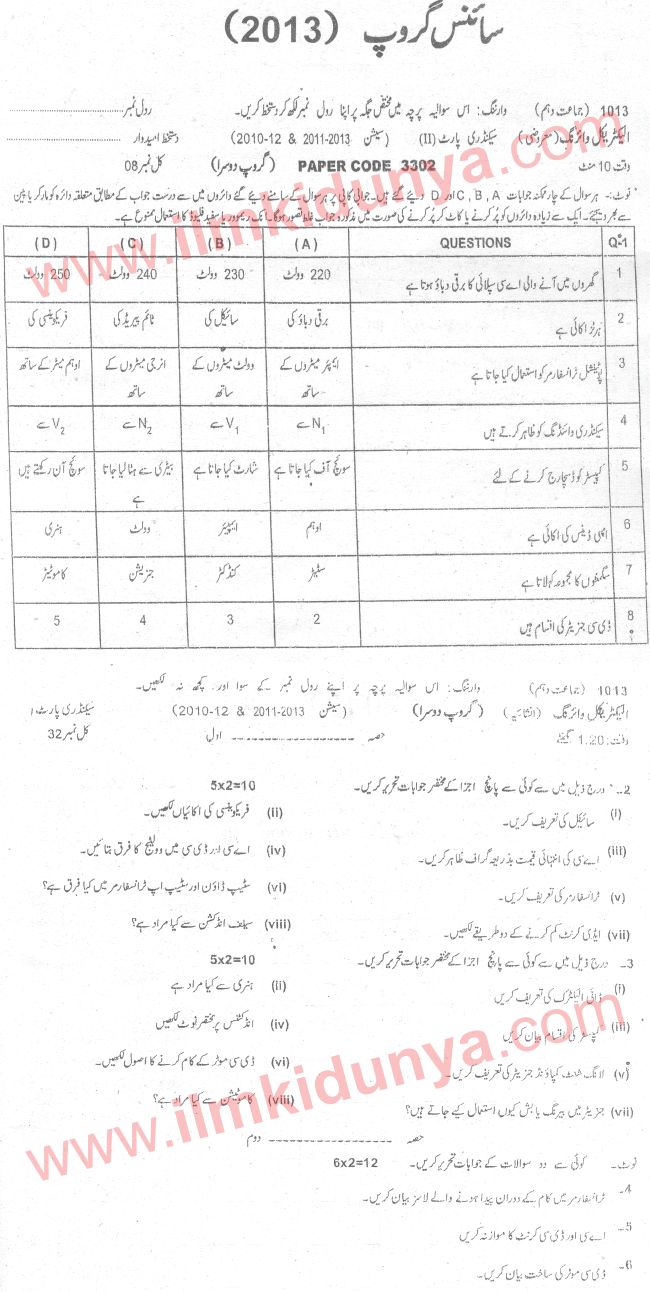 سائنس گروپ (2013)
1013 (جماعت دہم) وارننگ: اس سوالیہ پرچہ میں مختص جگہ پر اپنا رول نمبر لکھ کر دستخط کریں۔ رول نمبر
الیکٹریکل وائرنگ (معروضی) سیکنڈری پارٹ (II) (سیشن 2011-2013 & 2010-12) دستخط امیدوار
وقت 10 منٹ PAPER CODE 3302 (گروپ دوسرا) کل نمبر 08
نوٹ:۔ ہر سوال کے چار ممکنہ جوابات A , B , C اور D دیئے گئے ہیں۔ جوابی کاپی پر ہر سوال کے سامنے دیئے گئے دائروں میں سے درست جواب کے مطابق متعلقہ دائرہ کو مارکر یا پین
سے بھر دیجئے۔ ایک سے زیادہ دائروں کو پُر کرنے یا کاٹ کر پُر کرنے کی صورت میں مذکورہ جواب غلط تصور ہوگا۔ انک ریموور یا سفید فلیوڈ کا استعمال ممنوع ہے۔
Q-1 QUESTIONS (A) (B) (C) (D)
1 گھروں میں آنے والی اے سی سپلائی کا برقی دباؤ ہوتا ہے 220 وولٹ 230 وولٹ 240 وولٹ 250 وولٹ
2 ہرٹز اکائی ہے برقی دباؤ کی سائیکل کی ٹائم پیریڈ کی فریکوینسی کی
3 پوٹینشل ٹرانسفارمر کو استعمال کیا جاتا ہے ایمپئر میٹروں کے ساتھ وولٹ میٹروں کے ساتھ انرجی میٹروں کے ساتھ اوہم میٹر کے ساتھ
4 سیکنڈری وائنڈنگ کو ظاہر کرتے ہیں N1 سے V1 سے N2 سے V2 سے
5 کپیسٹر کو ڈسچارج کرنے کے لئے سوئچ آف کیا جاتا ہے شارٹ کیا جاتا ہے بیٹری سے ہٹا لیا جاتا ہے سوئچ آن رکھتے ہیں
6 امپی ڈینس کی اکائی ہے اوہم ایمپیئر وولٹ ہنری
7 سگمنٹوں کا مجموعہ کہلاتا ہے سٹیٹر کنڈکٹر جنریشن کاموٹیٹر
8 ڈی سی جنریٹر کی اقسام ہیں 2 3 4 5
1013 (جماعت دہم) وارننگ: اس سوالیہ پرچہ پر اپنے رول نمبر کے سوا اور کچھ نہ لکھیں۔
الیکٹریکل وائرنگ (انشائیہ) (گروپ دوسرا) (سیشن 2011-2013 & 2010-12) سیکنڈری پارٹ
وقت: 1.20 گھنٹے حصہ اول کل نمبر 32
2۔ درج ذیل میں سے کوئی سے پانچ اجزا کے مختصر جوابات تحریر کریں۔ 5x2=10
(i) سائیکل کی تعریف کریں۔ (ii) فریکوینسی کی اکائیاں لکھیں۔
(iii) اے سی کی انتہائی قیمت بذریعہ گراف ظاہر کریں۔ (iv) اے سی اور ڈی سی میں وولٹیج کا فرق بتائیں۔
(v) ٹرانسفارمر کی تعریف کریں۔ (vi) سٹیپ ڈاؤن اور سٹیپ اپ ٹرانسفارمر میں کیا فرق ہے؟
(vii) ایڈی کرنٹ کم کرنے کے دو طریقے لکھیں۔ (viii) سیلف انڈکشن سے کیا مراد ہے؟
3۔ درج ذیل میں سے کوئی سے پانچ اجزا کے مختصر جوابات تحریر کریں۔ 5x2=10
(i) ڈائی الیکٹرک کی تعریف کریں (ii) ہنری سے کیا مراد ہے
(iii) کپیسٹر کی اقسام بیان کریں (iv) انڈکٹنس پر مختصر نوٹ لکھیں
(v) لانگ شنٹ کمپاؤنڈ جنریٹر کی تعریف کریں۔ (vi) ڈی سی موٹر کے کام کرنے کا اصول لکھیں۔
(vii) جنریٹر میں بیرنگ یا بش کیوں استعمال کیے جاتے ہیں؟ (viii) کاموٹیشن سے کیا مراد ہے؟
حصہ دوم
نوٹ۔ کوئی سے دو سوالات کے جوابات تحریر کریں۔ 6x2=12
4۔ ٹرانسفارمر میں کام کے دوران پیدا ہونے والے لاسز بیان کریں۔
5۔ اے سی اور ڈی سی کرنٹ کا موازنہ کریں
6۔ ڈی سی موٹر کی ساخت بیان کریں۔
www.ilmkidunya.com
www.ilmkidunya.com